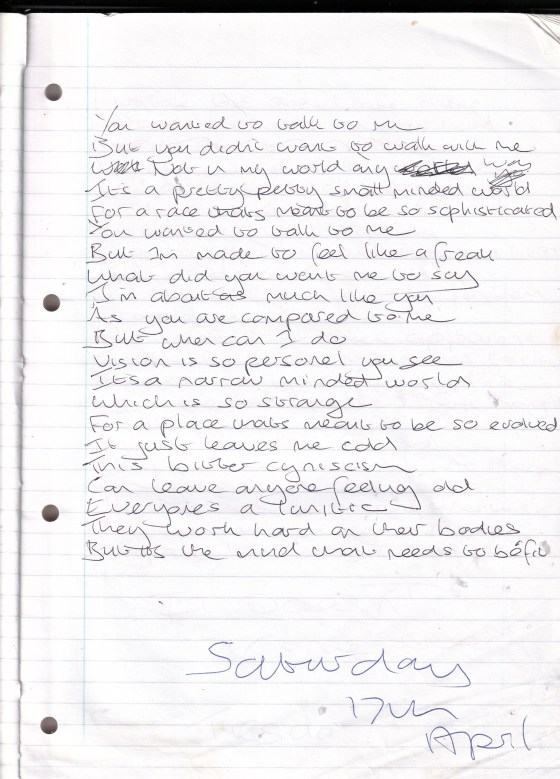 You wanted to talk to me
But you didn't want to walk with me
Not in my world any way
It's a pretty petty small minded world
For a race thats meant to be so sophisticated
You wanted to talk to me
But Im made to feel like a freak
What did you want me to say
I'm about as much like you
As you are compared to me
But what can I do
Vision is so personel you see
Its a narrow minded world
Which is so strange
For a place thats meant to be so evolved
It just leaves me cold
This bitter cyniscism
Can leave anyone feeling old
Everyones a
They work hard on their bodies
But its the mind that needs to be fit
Saturday
17th
April